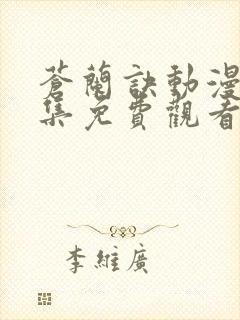 蒼蘭訣動漫
集免費觀看
李維廣